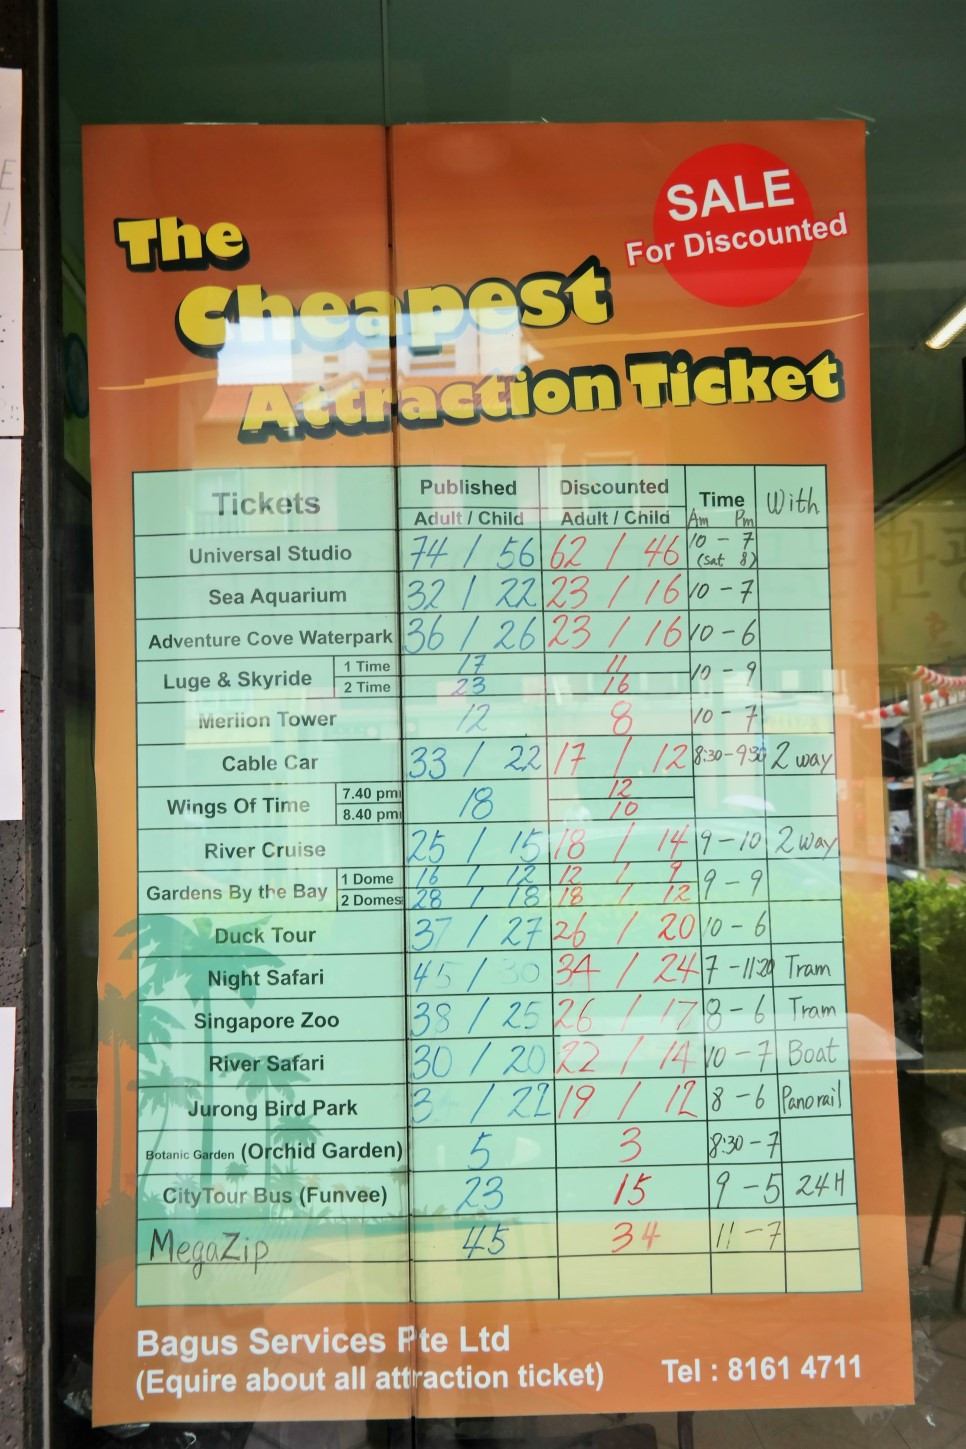 The
Cheapest
Attraction Ticket
SALE
For Discounted
Tickets Published Discounted Time With
Adult / Child Adult / Child Am Pm
Universal Studio 74 / 56 62 / 46 10 - 7
(Sat 8)
Sea Aquarium 32 / 22 23 / 16 10 - 7
Adventure Cove Waterpark 36 / 26 23 / 16 10 - 6
Luge & Skyride 1 Time 17 11 10 - 9
2 Time 23 16
Merlion Tower 12 8 10 - 7
Cable Car 33 / 22 17 / 12 8:30 - 9:30 2 way
Wings Of Time 7.40 pm 18 12
8.40 pm 10
River Cruise 25 / 15 18 / 14 9 - 10 2 way
Gardens By the Bay 1 Dome 16 / 12 12 / 9 9 - 9
2 Domes 28 / 18 18 / 12
Duck Tour 37 / 27 26 / 20 10 - 6
Night Safari 45 / 30 34 / 24 7 - 11:20 Tram
Singapore Zoo 38 / 25 26 / 17 8 - 6 Tram
River Safari 30 / 20 22 / 14 10 - 7 Boat
Jurong Bird Park / 19 / 12 8 - 6 Panorail
Botanic Garden (Orchid Garden) 5 3 8:30 - 7
City Tour Bus (Funvee) 23 15 9 - 5 24H
MegaZip 45 34 11 - 7
Bagus Services Pte Ltd
(Equire about all attraction ticket) Tel : 8161 4711